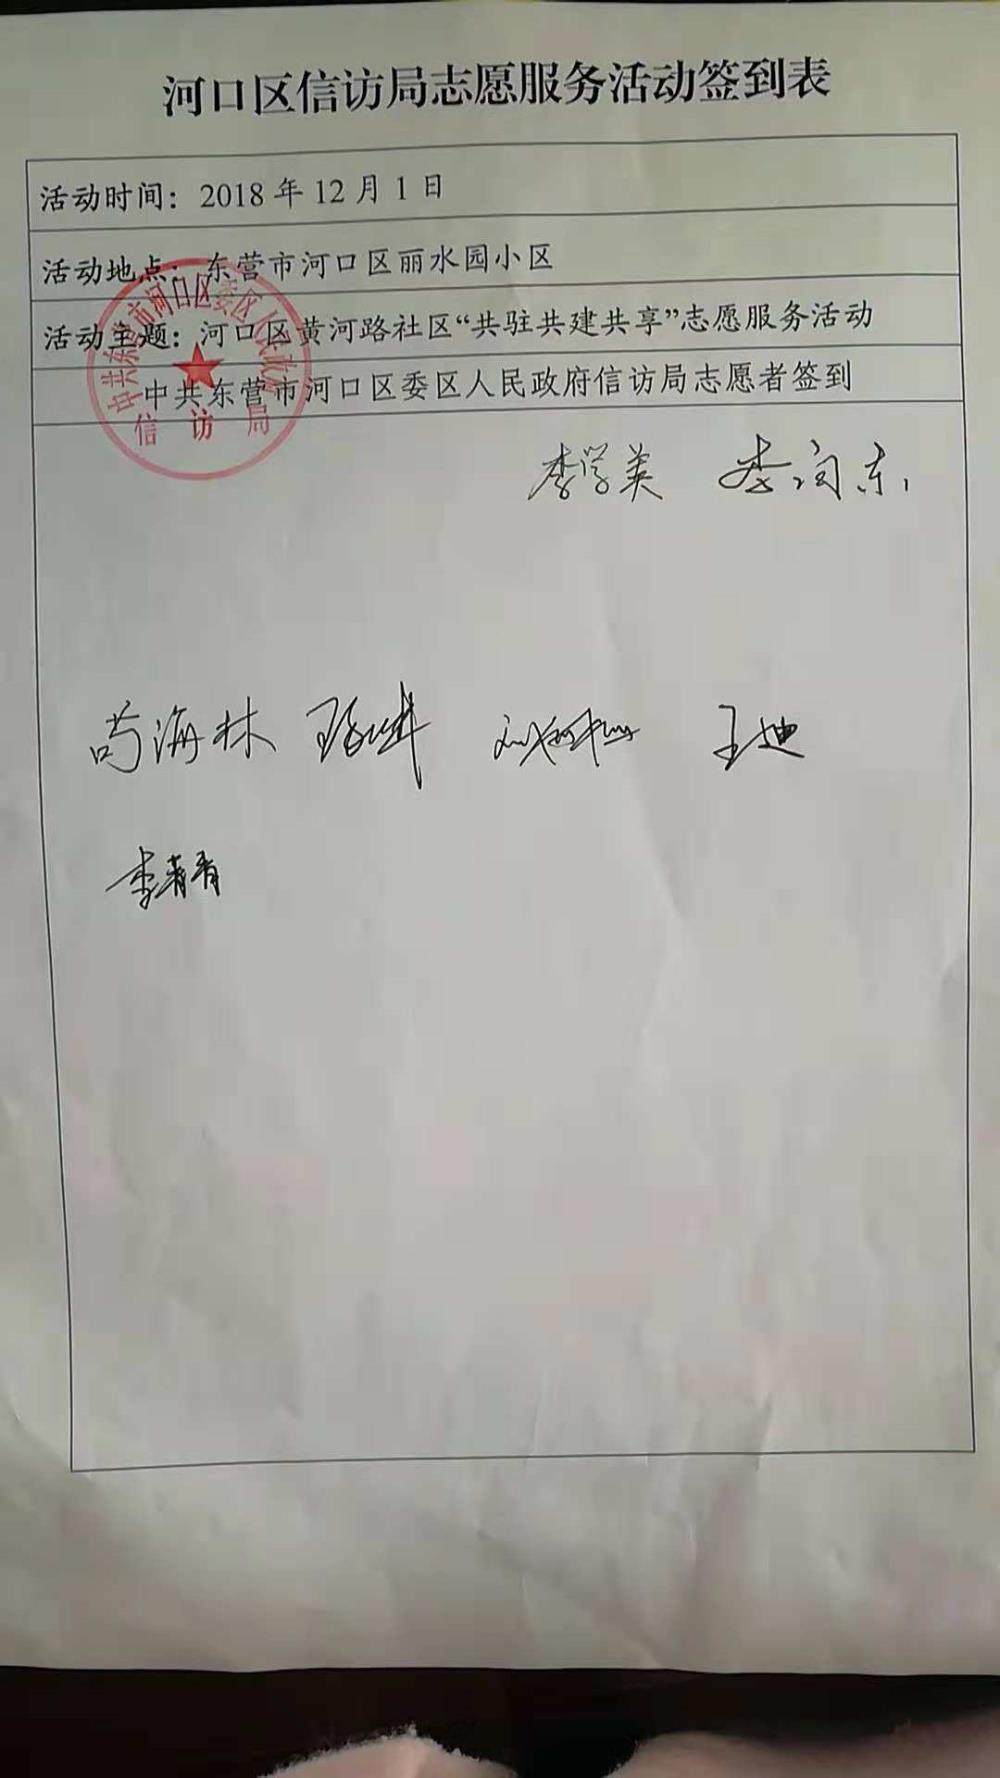 河口区信访局志愿服务活动签到表
活动时间：2018年12月1日
活动地点：东营市河口区丽水园小区
活动主题：河口区黄河路社区“共驻共建共享”志愿服务活动
中共东营市河口区委区人民政府信访局志愿者签到
中共东营市河口区委区人民政府
信访局
李学美 李向东
苟海林 王迪
李青青